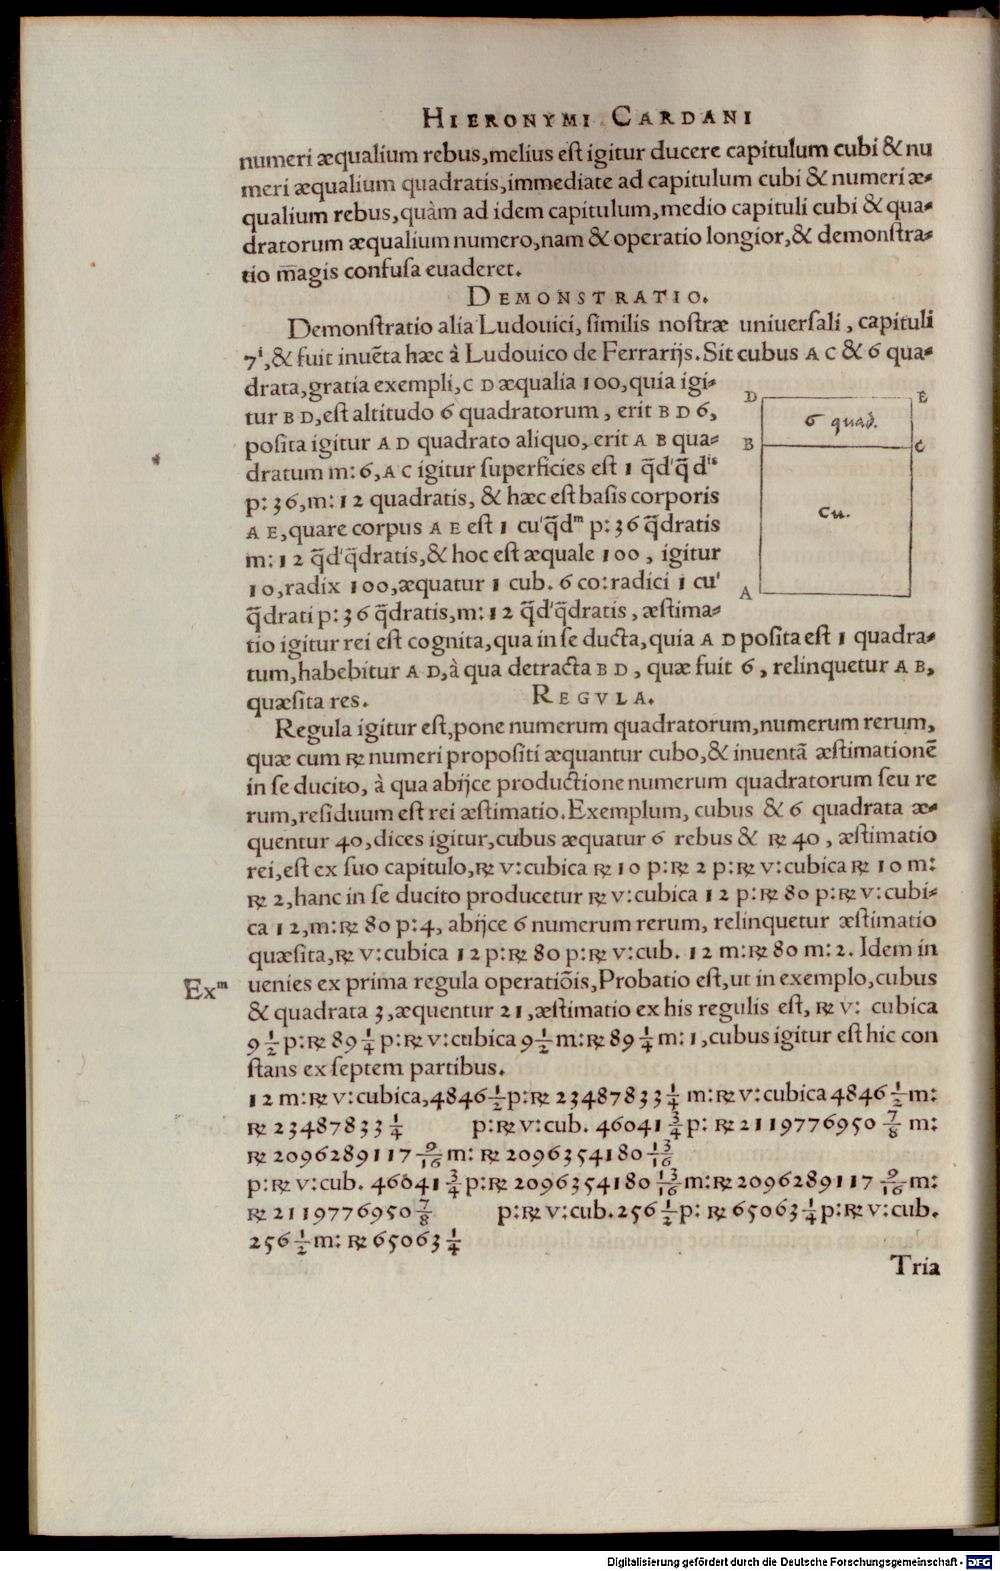 HIERONYMI CARDANI
numeri æqualium rebus, melius est igitur ducere capitulum cubi & nu
meri æqualium quadratis, immediate ad capitulum cubi & numeri æ-
qualium rebus, quàm ad idem capitulum, medio capituli cubi & qua-
dratorum æqualium numero, nam & operatio longior, & demonstra-
tio m̃agis confusa euaderet.
DEMONSTRATIO.
Demonstratio alia Ludouici, similis nostræ uniuersali, capituli
7ⁱ, & fuit inuẽta hæc à Ludouico de Ferrarijs. Sit cubus A C & 6 qua-
drata, gratia exempli, C D æqualia 100, quia igi-
tur B D, est altitudo 6 quadratorum, erit B D 6,
posita igitur A D quadrato aliquo, erit A B qua-
dratum m: 6, A C igitur superficies est 1 q̃d'q̃dᵗⁱˢ
p: 36, m: 12 quadratis, & hæc est basis corporis
A E, quare corpus A E est 1 cu'q̃dᵐ p: 36 q̃dratis
m: 12 q̃d'q̃dratis, & hoc est æquale 100, igitur
10, radix 100, æquatur 1 cub. 6 co: radici 1 cu'
q̃drati p: 36 q̃dratis, m: 12 q̃d'q̃dratis, æstima-
D E
6 quad.
B C
Cu.
A
tio igitur rei est cognita, qua in se ducta, quia A D posita est 1 quadra-
tum, habebitur A D, à qua detracta B D, quæ fuit 6, relinquetur A B,
quæsita res. REGVLA.
Regula igitur est, pone numerum quadratorum, numerum rerum,
quæ cum ℞ numeri propositi æquantur cubo, & inuentã æstimationẽ
in se ducito, à qua abijce productione numerum quadratorum seu re
rum, residuum est rei æstimatio. Exemplum, cubus & 6 quadrata æ-
quentur 40, dices igitur, cubus æquatur 6 rebus & ℞ 40, æstimatio
rei, est ex suo capitulo, ℞ v: cubica ℞ 10 p: ℞ 2 p: ℞ v: cubica ℞ 10 m:
℞ 2, hanc in se ducito producetur ℞ v: cubica 12 p: ℞ 80 p: ℞ v: cubi-
ca 12, m: ℞ 80 p: 4, abijce 6 numerum rerum, relinquetur æstimatio
quæsita, ℞ v: cubica 12 p: ℞ 80 p: ℞ v: cub. 12 m: ℞ 80 m: 2. Idem in
Exᵐ uenies ex prima regula operatiõis, Probatio est, ut in exemplo, cubus
& quadrata 3, æquentur 21, æstimatio ex his regulis est, ℞ v: cubica
9 1/2 p: ℞ 89 1/4 p: ℞ v: cubica 9 1/2 m: ℞ 89 1/4 m: 1, cubus igitur est hic con
stans ex septem partibus.
12 m: ℞ v: cubica, 4846 1/2 p: ℞ 23487833 1/4 m: ℞ v: cubica 4846 1/2 m:
℞ 23487833 1/4 p: ℞ v: cub. 46041 3/4 p: ℞ 2119776950 7/8 m:
℞ 2096289117 9/16 m: ℞ 2096354180 13/16
p: ℞ v: cub. 46041 3/4 p: ℞ 2096354180 13/16 m: ℞ 2096289117 9/16 m:
℞ 2119776950 7/8 p: ℞ v: cub. 256 1/2 p: ℞ 65063 1/4 p: ℞ v: cub.
256 1/2 m: ℞ 65063 1/4
Tria
Digitalisierung gefördert durch die Deutsche Forschungsgemeinschaft - DFG